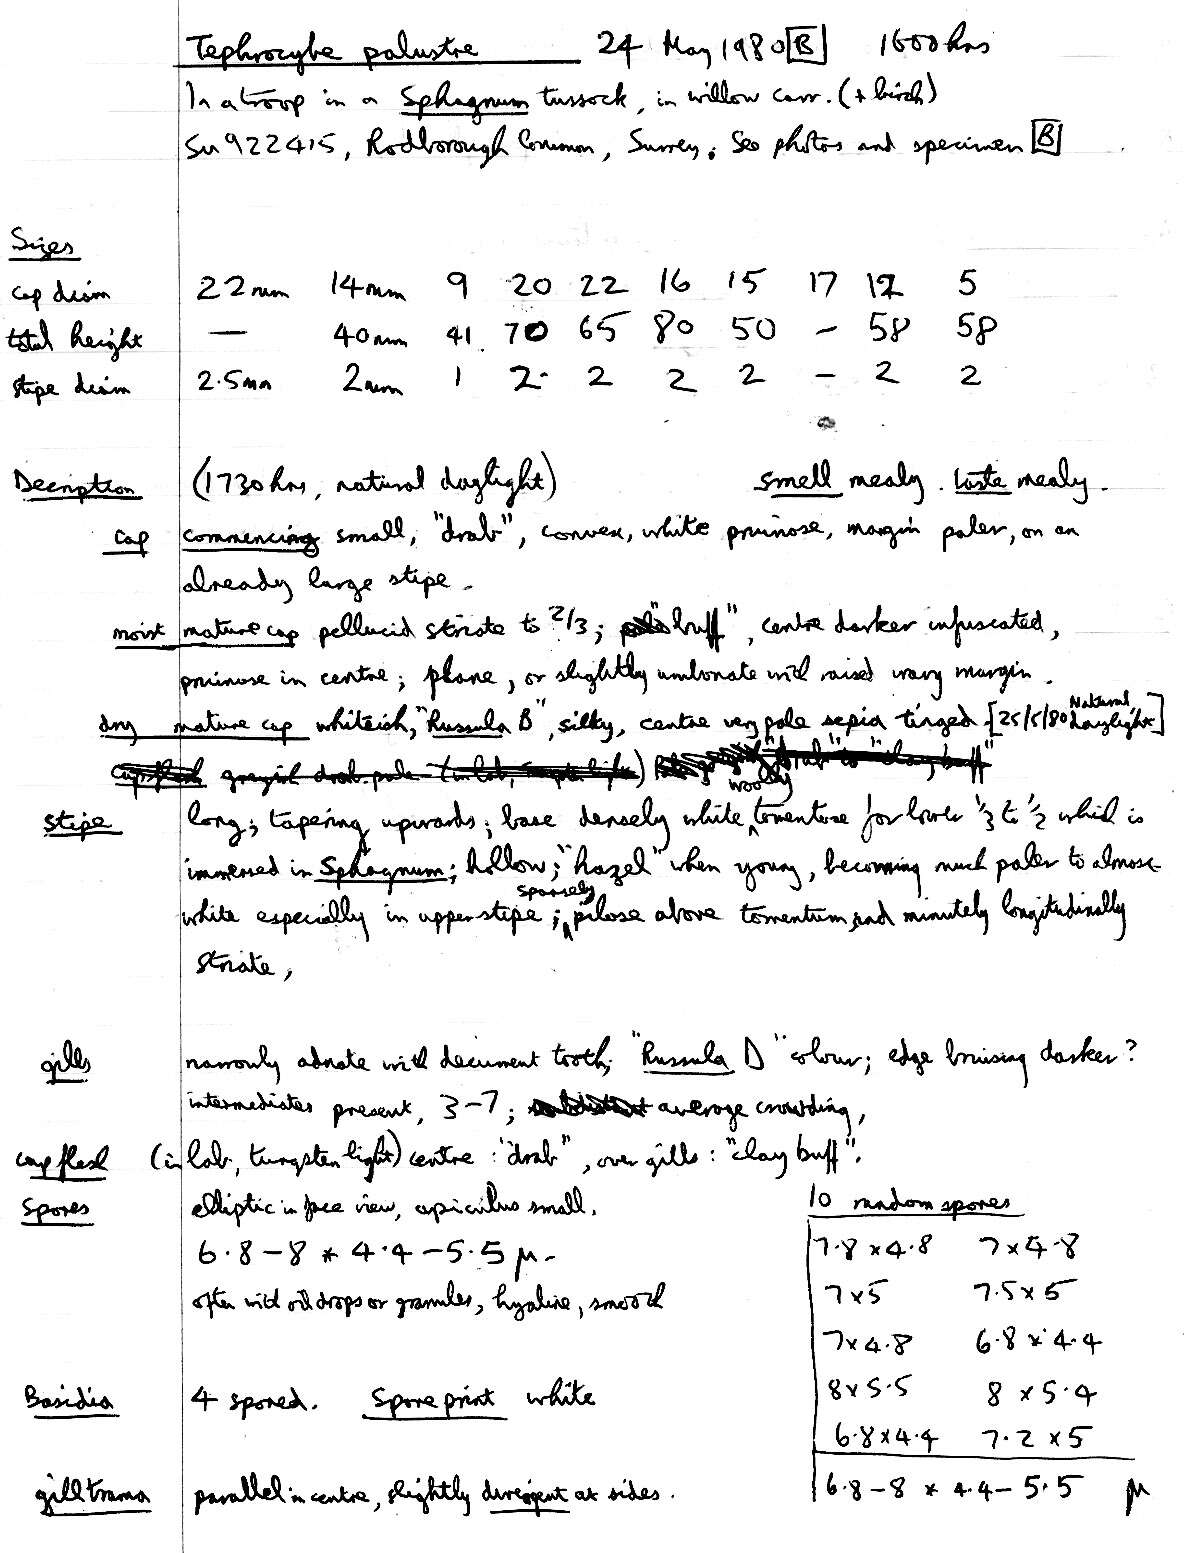 Tephrocybe palustre 24 May 1980 [B] 1600hrs
In a troop in a Sphagnum tussock, in willow carr. (+ birch)
SU 922415, Rodborough Common, Surrey; See photos and specimen [B]
Sizes
cap diam 22mm 14mm 9 20 22 16 15 17 12 5
total height — 40mm 41 70 65 80 50 – 58 58
stipe diam 2.5mm 2mm 1 2 2 2 2 – 2 2
Description (1730hrs, natural daylight) smell mealy. taste mealy.
cap commencing small, "drab", convex, white pruinose, margin paler, on an
already large stipe.
moist mature cap pellucid striate to 2/3; "buff", centre darker infuscated,
pruinose in centre; plane, or slightly umbonate with raised wavy margin.
dry mature cap whiteish, "Russula B", silky, centre very pale sepia tinged [25/5/80 Natural Daylight]
stipe long; tapering upwards; base densely white woolly tomentose for lower 1/3 to 1/2 which is
immersed in Sphagnum; hollow; "hazel" when young, becoming much paler to almost
white especially in upper stipe; sparsely pilose above tomentum, and minutely longitudinally
striate,
gills narrowly adnate with decurrent tooth; "Russula D" colour; edge bruising darker?
intermediates present, 3-7; average crowding,
cap flesh (in lab, tungsten light) centre: "drab", over gills: "clay buff".
Spores elliptic in face view, apiculus small.
6.8-8 × 4.4-5.5 µ.
often with oil drops or granules, hyaline, smooth
10 random spores
7.8×4.8 7×4.8
7×5 7.5×5
7×4.8 6.8×4.4
8×5.5 8×5.4
6.8×4.4 7.2×5
6.8-8 × 4.4-5.5 µ
Basidia 4 spored. Spore print white
gill trama parallel in centre, slightly divergent at sides.